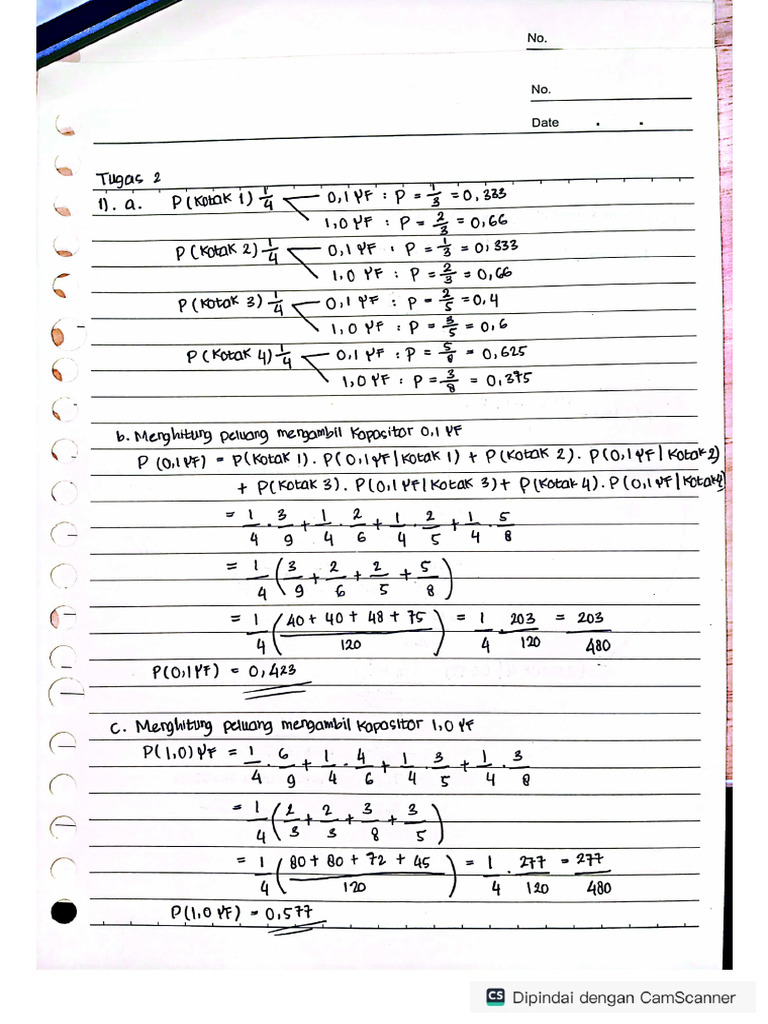 No.
No.
Date . .
Tugas 2
1). a. P(Kotak 1) 1/4 0,1 μF : P = 1/3 = 0,333
1,0 μF : P = 2/3 = 0,66
P(Kotak 2) 1/4 0,1 μF : P = 1/3 = 0,333
1,0 μF : P = 2/3 = 0,66
P(Kotak 3) 1/4 0,1 μF : P = 2/5 = 0,4
1,0 μF : P = 3/5 = 0,6
P(Kotak 4) 1/4 0,1 μF : P = 5/8 = 0,625
1,0 μF : P = 3/8 = 0,375
b. Menghitung peluang mengambil Kapasitor 0,1 μF
P(0,1 μF) = P(Kotak 1). P(0,1 μF|Kotak 1) + P(Kotak 2). P(0,1 μF|Kotak 2)
+ P(Kotak 3). P(0,1 μF|Kotak 3) + P(Kotak 4). P(0,1 μF|Kotak 4)
= 1/4 . 3/9 + 1/4 . 2/6 + 1/4 . 2/5 + 1/4 . 5/8
= 1/4 (3/9 + 2/6 + 2/5 + 5/8)
= 1/4 (40 + 40 + 48 + 75 / 120) = 1/4 . 203/120 = 203/480
P(0,1 μF) = 0,423
c. Menghitung peluang mengambil Kapasitor 1,0 μF
P(1,0) μF = 1/4 . 6/9 + 1/4 . 4/6 + 1/4 . 3/5 + 1/4 . 3/8
= 1/4 (2/3 + 2/3 + 3/8 + 3/5)
= 1/4 (80 + 80 + 72 + 45 / 120) = 1/4 . 277/120 = 277/480
P(1,0 μF) = 0,577
CS Dipindai dengan CamScanner